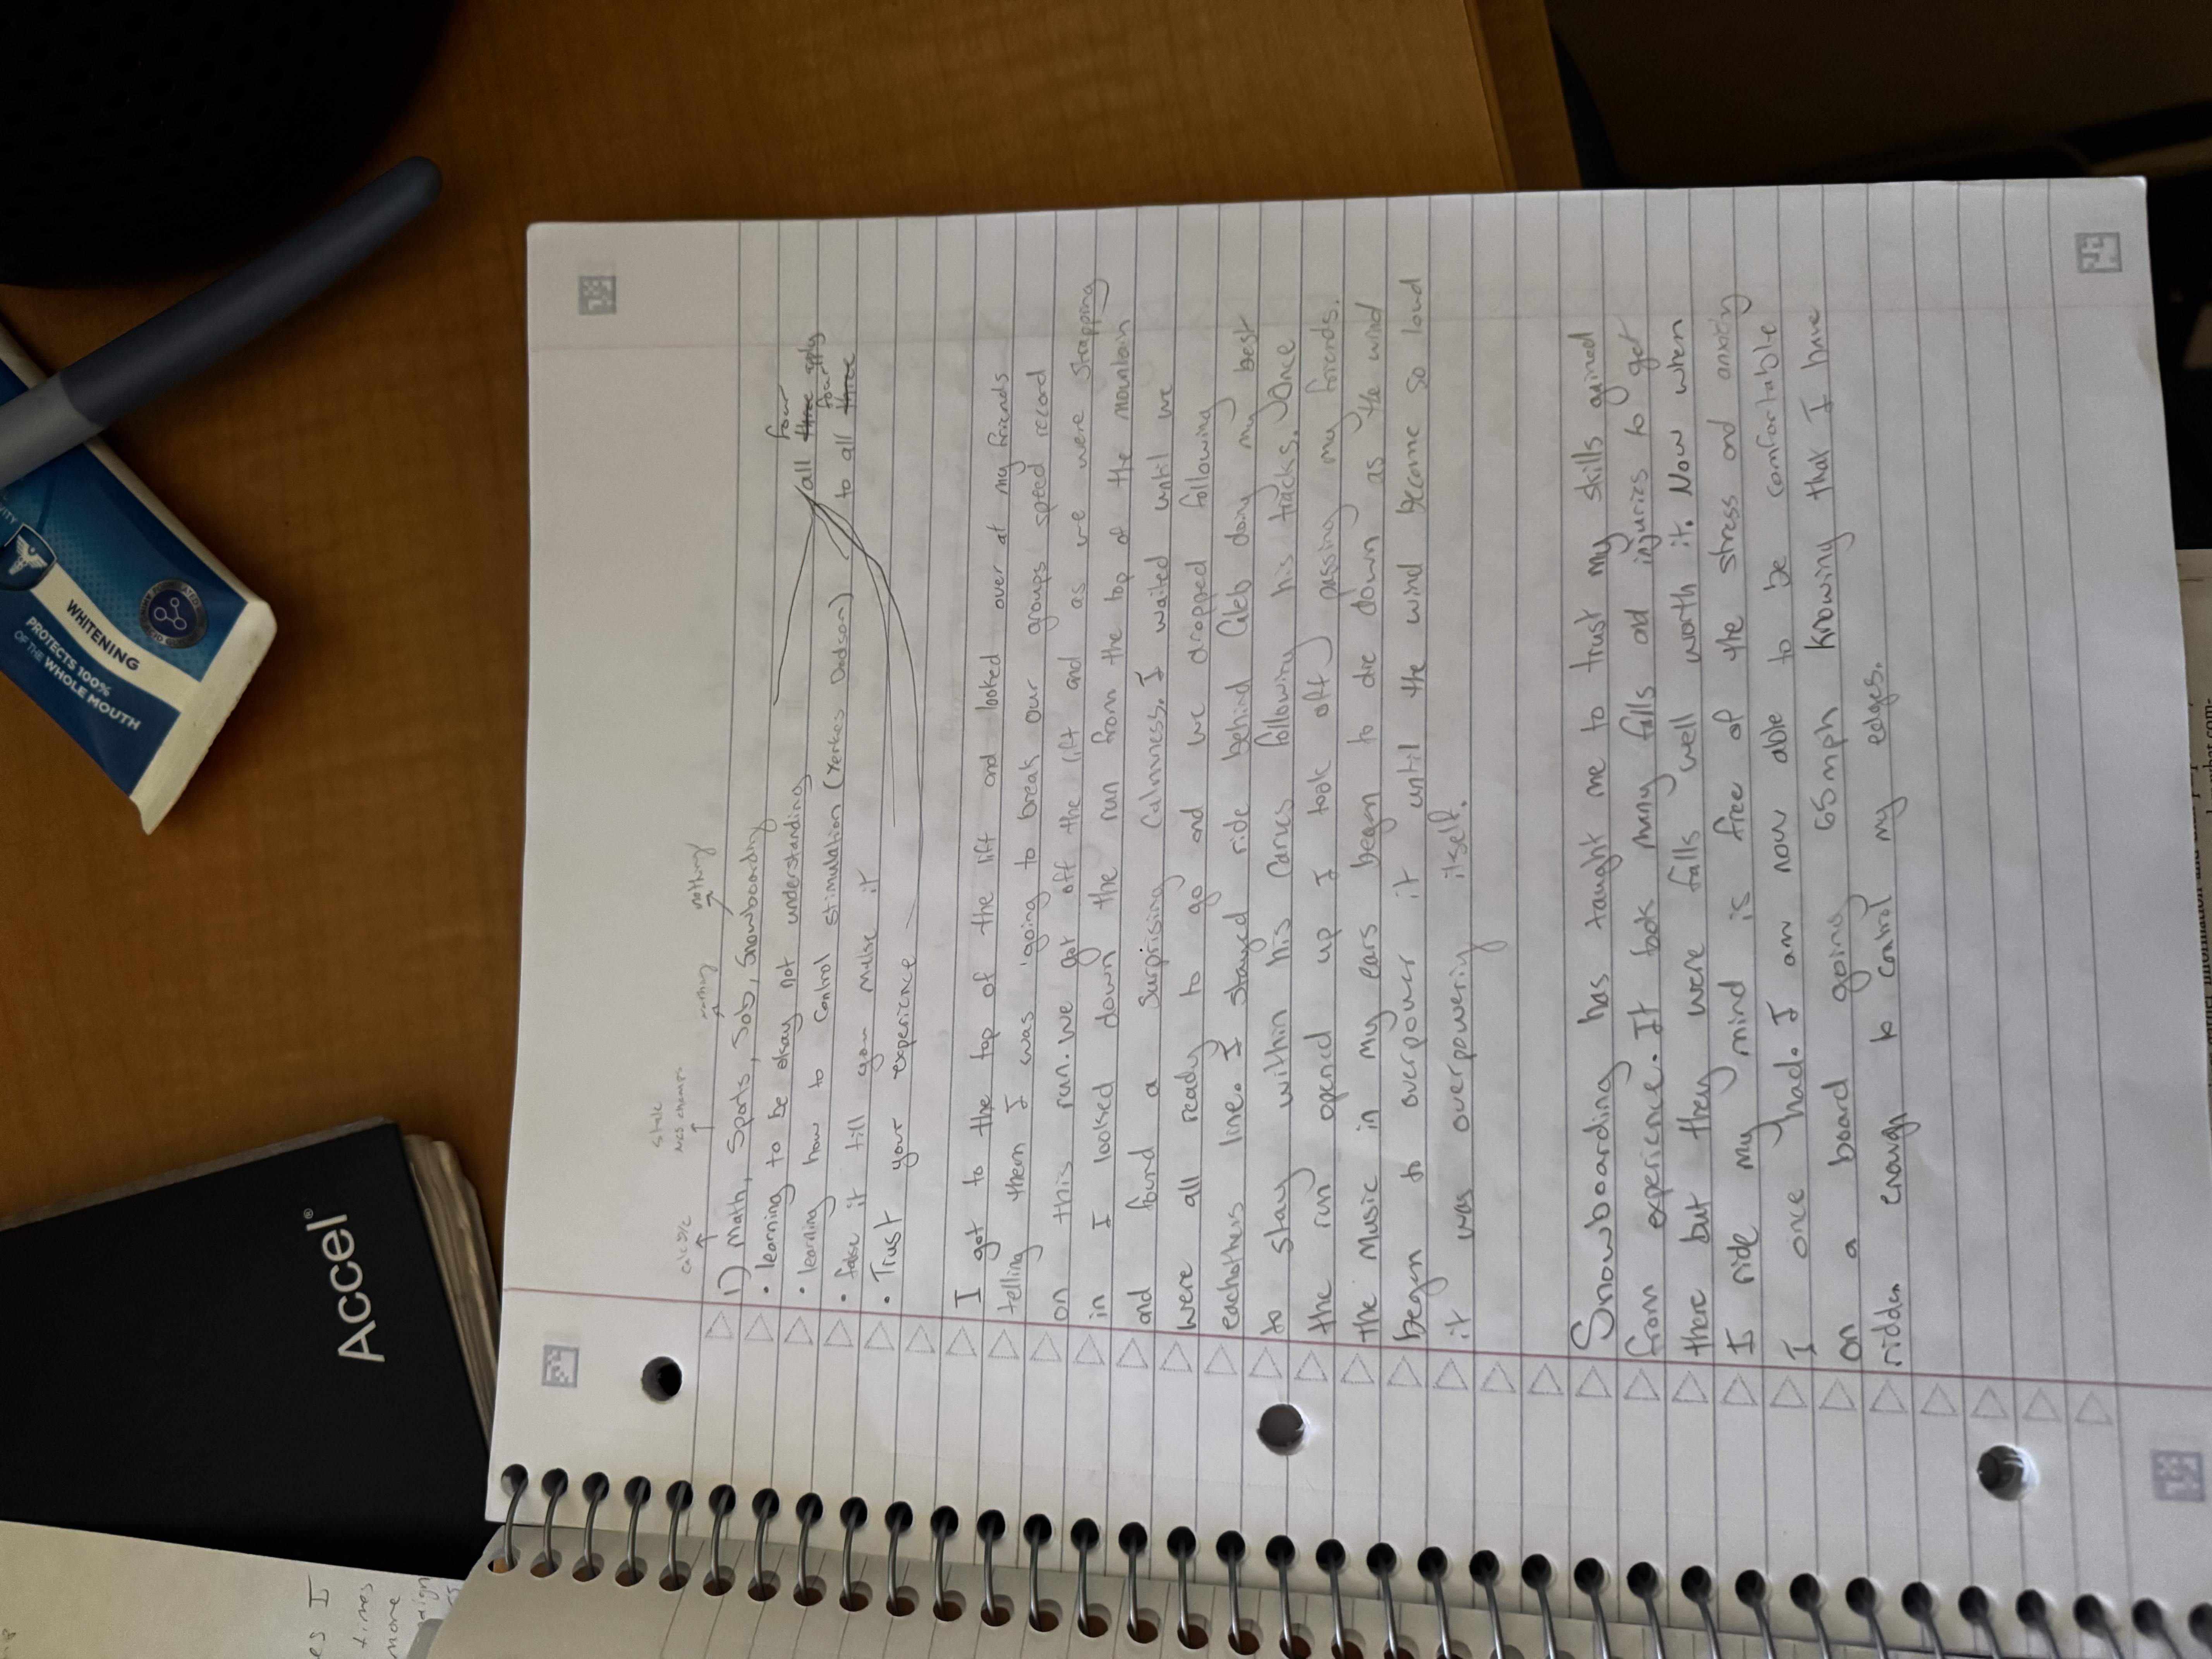 calc 3/c
State
ACS champs
nothing
nothing
1) Math, Sports, Job, Snowboarding
• learning to be okay not understanding
• learning how to control stimulation (Yerkes Dodson)
• fake it till you make it
• Trust your experience
four
all three apply
four
to all three
I got to the top of the lift and looked over at my friends
telling them I was going to break our groups speed record
on this run. We got off the lift and as we were strapping
in I looked down the run from the top of the mountain
and found a surprising calmness. I waited until we
were all ready to go and we dropped following
eachothers line. I stayed ride behind Caleb doing my best
to stay within his carves following his tracks. Once
the run opened up I took off passing my friends.
the music in my ears began to die down as the wind
began to overpower it until the wind became so loud
it was overpowering itself.
Snowboarding has taught me to trust my skills gained
from experience. It took many falls ad injuries to get
there but they were falls well worth it. Now when
I ride my mind is free of the stress and anxiety
I once had. I am now able to be comfortable
on a board going 65mph knowing that I have
ridden enough to control my edges.
Accel®
WHITENING
PROTECTS 100%
OF THE WHOLE MOUTH
es I
times
more